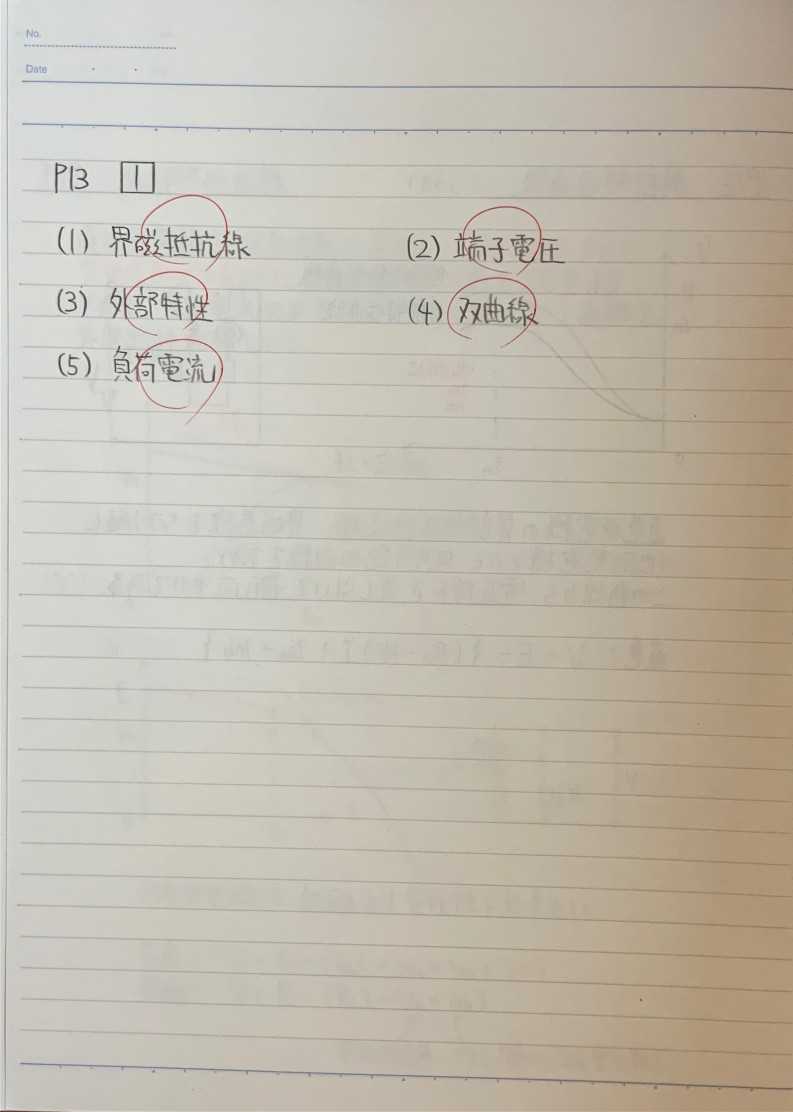 No.
Date
P13 1
(1) 界磁抵抗線 (2) 端子電圧
(3) 外部特性 (4) 双曲線
(5) 負荷電流